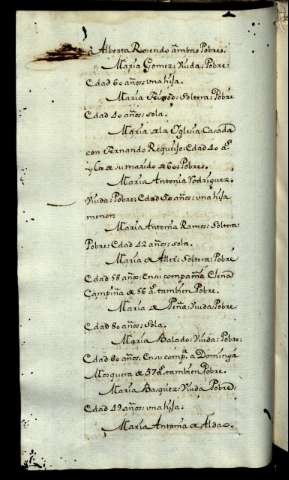 Alberta Rosendo ambas Pobres.
Maria Gomez: Viuda: Pobre:
Edad 60 años: una hija.
Maria Feijoo: Soltera: Pobre
Edad 40 años: sola.
Maria de la Yglesia Casada
con Fernando Requeijo: Edad 40 as
y la de su marido de 60: Pobres.
Maria Antonia Rodriguez.
Viuda: Pobre: Edad 50 años: una hija
menor.
Maria Antonia Ramos: Soltera:
Pobre: Edad 42 años: sola.
Maria de: Soltera: Pobre
Edad 58 años: En su compañia Elena
Campiña de 56 as tambien Pobre.
Maria de Peña: Viuda: Pobre
Edad 80 años: Sola.
Maria Balado: Viuda: Pobre:
Edad 80 años: En su compa Dominga
Mosquera de 57 as tambien Pobre.
Maria Basquez: Viuda Pobre:
Edad 49 años: una hija.
Maria Antonia de Aldao.